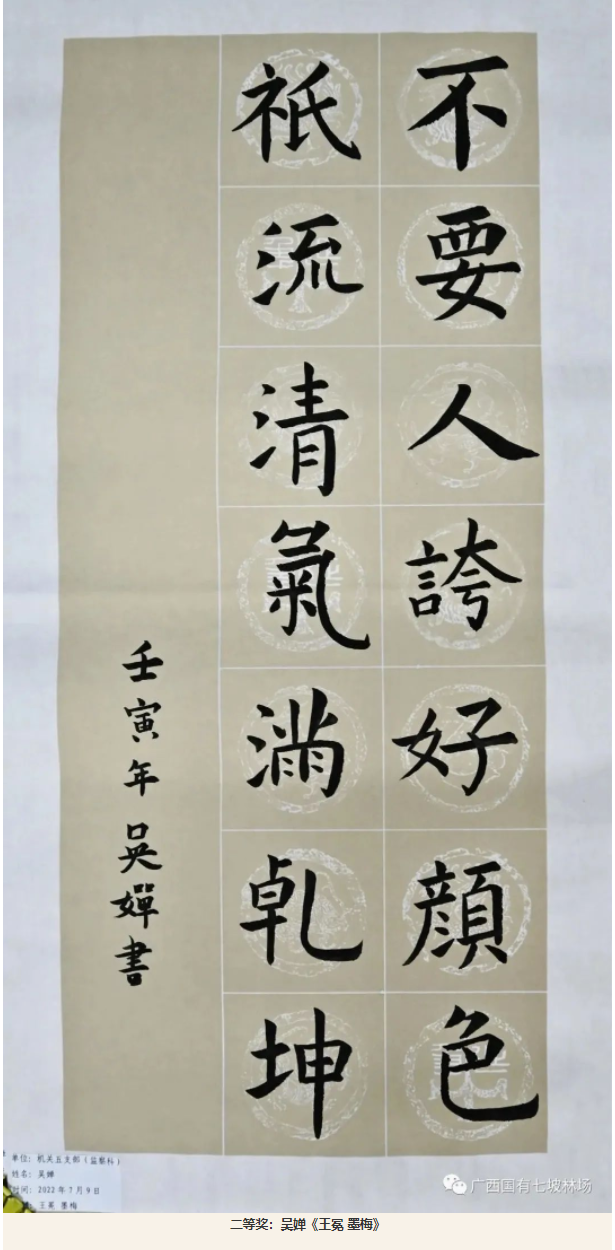 不要人誇好顔色
祇流清氣滿乹坤
壬寅年吳嬋書
单位：机关五支部（监察科）
姓名：吴婵
时间：2022年7月9日
王冕 墨梅
广西国有七坡林场
二等奖：吴婵《王冕 墨梅》